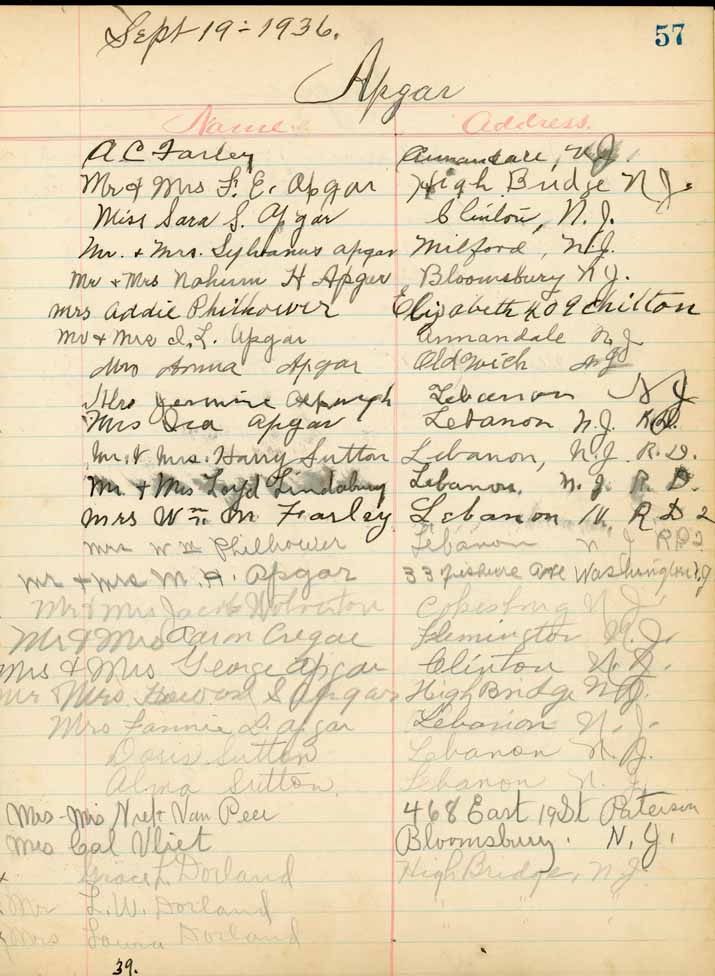 Sept 19 - 1936.
57
Apgar
Name. Address.
A C Farley Annandale, N.J.
Mr & Mrs F. E. Apgar High Bridge N J.
Miss Sara S. Apgar Clinton, N. J.
Mr. & Mrs. Sylvanus Apgar Milford, N.J.
Mr & Mrs Nahum H Apgar Bloomsbury N.J.
Mrs Addie Philhower Elizabeth 409 Chilton
Mr & Mrs I. L. Apgar Annandale N J
Mrs Anna Apgar Oldwick
Mrs Jermine Lebanon N J
Mrs Apgar Lebanon N.J.
Mr. & Mrs. Harry Sutton Lebanon, N.J. R.D.
Mr. & Mrs Loyd Lindabury Lebanon, N. J. R. D.
Mrs Wm. M Farley Lebanon R D 2
Mrs Wm Philhower Lebanon N J RD2
Mr & Mrs M. H. Apgar 33 Ave Washington N.J
Mr & Mrs Jacob Wolverton N J.
Mr & Mrs Aaron Cregar Flemington N. J.
Mrs & Mrs George Apgar Clinton N. J.
Mr Mrs Howard S Apgar High Bridge N J.
Mrs Fannie D. Apgar Lebanon N. J.
Doris Sutton Lebanon N. J.
Alma Sutton. Lebanon N. J.
Mrs - Mrs Van Peer 468 East 19 St Paterson
Mrs Cal Vliet Bloomsbury. N. J.
Grace L. Dorland High Bridge, N J.
Mr L. W. Dorland " "
Mrs Laura Dorland
39.